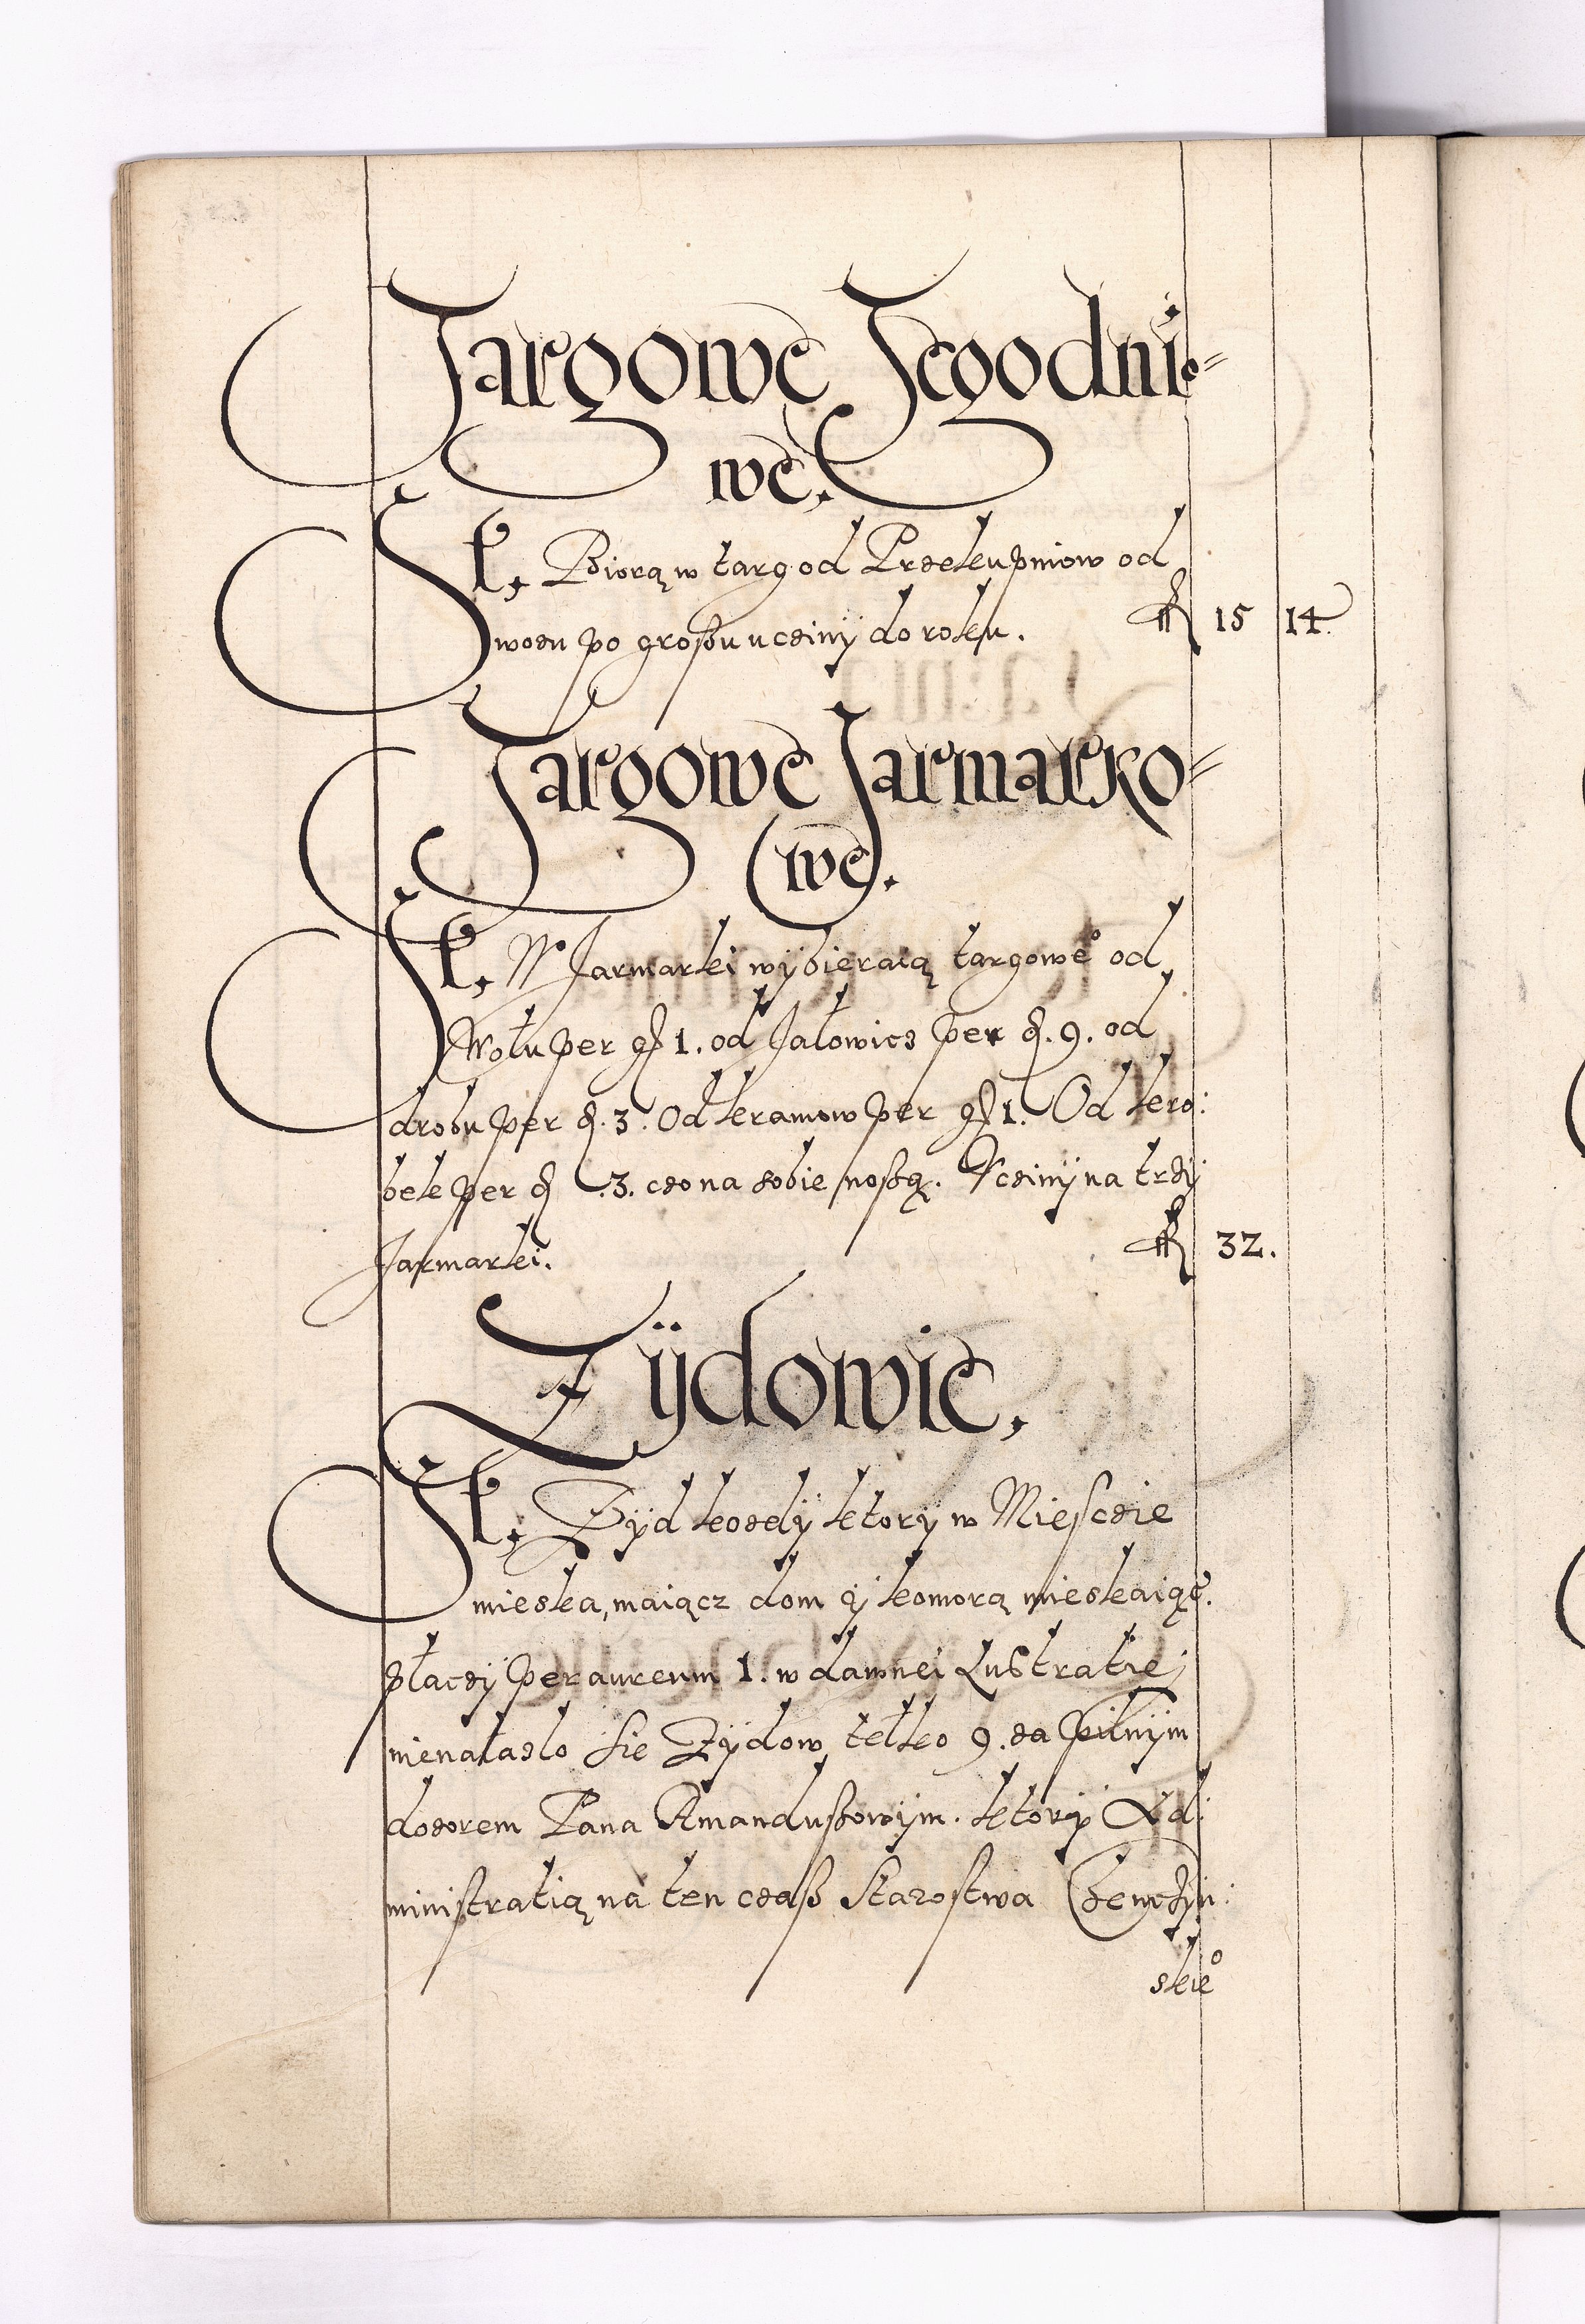 Targowe Tegodnie=
we.
It, Biorą w targ od Przekupniow od
wozu po groszu uczinÿ do roku. ff 15 14.
Targowe Jarmarko=
we.
It, W Jarmarki wÿbieraią targoweº od
Wołu per gʃ 1. od Jałowicz per ꝺ. 9. od
drobu per ꝺ. 3. Od kramow per gʃ 1. Od kro:
bek per ꝺ .3. czo na sobie noszą. Vczinÿ na trzÿ
Jarmarki. ff 32.
Zÿdowie.
It, Zÿd kozdÿ ktorÿ w Miesczie
mieska, maiącz dom ÿ komorą mieskaiąc.
płaczÿ per aureum 1. w dawnei Lustratiej
nienalazlo sie Zÿdow telko 9. za pilnÿm
dozorem Pana Amanduszowÿm. ktorÿ Ad:
ministratią na ten czasz Starostwa
skieº